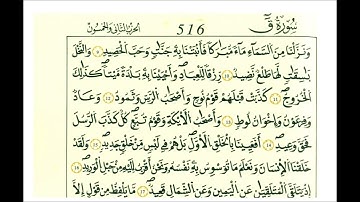 سُورَةُ قٓ 516 الحزب الثاني والخمسون
وَنَزَّلْنَا مِنَ السَّمَآءِ مَآءً مُّبَٰرَكًا فَأَنۢبَتْنَا بِهِۦ جَنَّٰتٍ وَحَبَّ الْحَصِيدِ ۝ وَالنَّخْلَ
بَاسِقَٰتٍ لَّهَا طَلْعٌ نَّضِيدٌ ۝ رِّزْقًا لِّلْعِبَادِ وَأَحْيَيْنَا بِهِۦ بَلْدَةً مَّيْتًا كَذَٰلِكَ
الْخُرُوجُ ۝ كَذَّبَتْ قَبْلَهُمْ قَوْمُ نُوحٍ وَأَصْحَٰبُ الرَّسِّ وَثَمُودُ ۝ وَعَادٌ
وَفِرْعَوْنُ وَإِخْوَٰنُ لُوطٍ ۝ وَأَصْحَٰبُ الْأَيْكَةِ وَقَوْمُ تُبَّعٍ كُلٌّ كَذَّبَ الرُّسُلَ
فَحَقَّ وَعِيدِ ۝ أَفَعَيِينَا بِالْخَلْقِ الْأَوَّلِ بَلْ هُمْ فِى لَبْسٍ مِّنْ خَلْقٍ جَدِيدٍ ۝ وَلَقَدْ
خَلَقْنَا الْإِنسَٰنَ وَنَعْلَمُ مَا تُوَسْوِسُ بِهِۦ نَفْسُهُۥ وَنَحْنُ أَقْرَبُ إِلَيْهِ مِنْ حَبْلِ الْوَرِيدِ ۝
إِذْ يَتَلَقَّى الْمُتَلَقِّيَانِ عَنِ الْيَمِينِ وَعَنِ الشِّمَالِ قَعِيدٌ ۝ مَّا يَلْفِظُ مِن قَوْلٍ إِلَّا